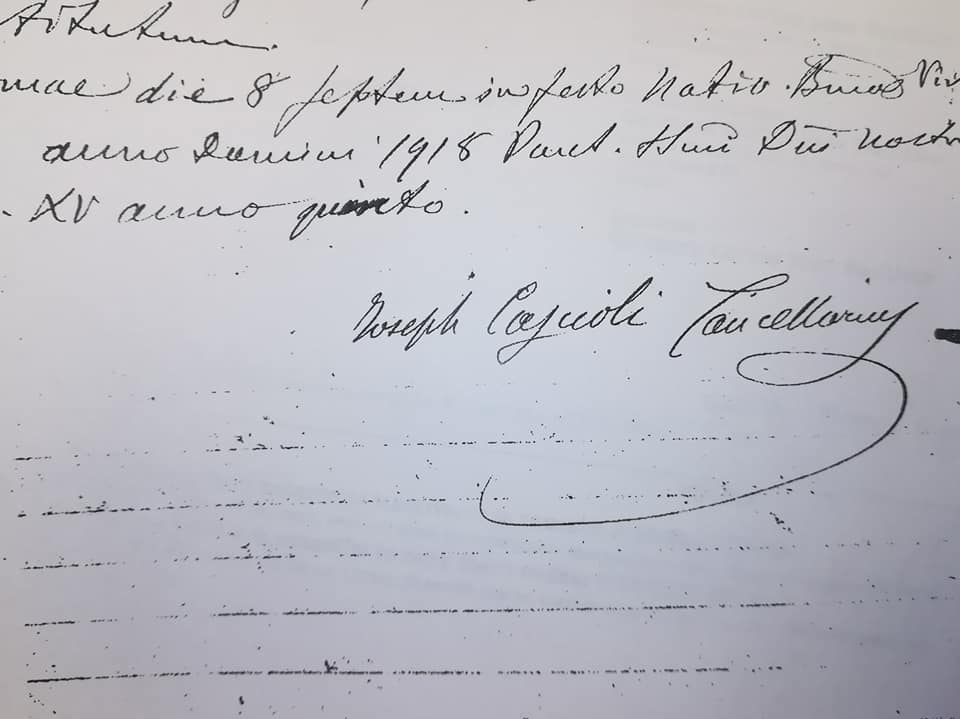 mae die 8 Septem in festo Nativ. Bmae Vir
anno Domini 1918 Pont. Smi Dni Nostr
. XV anno quinto.
Joseph Cascioli Cancellarius